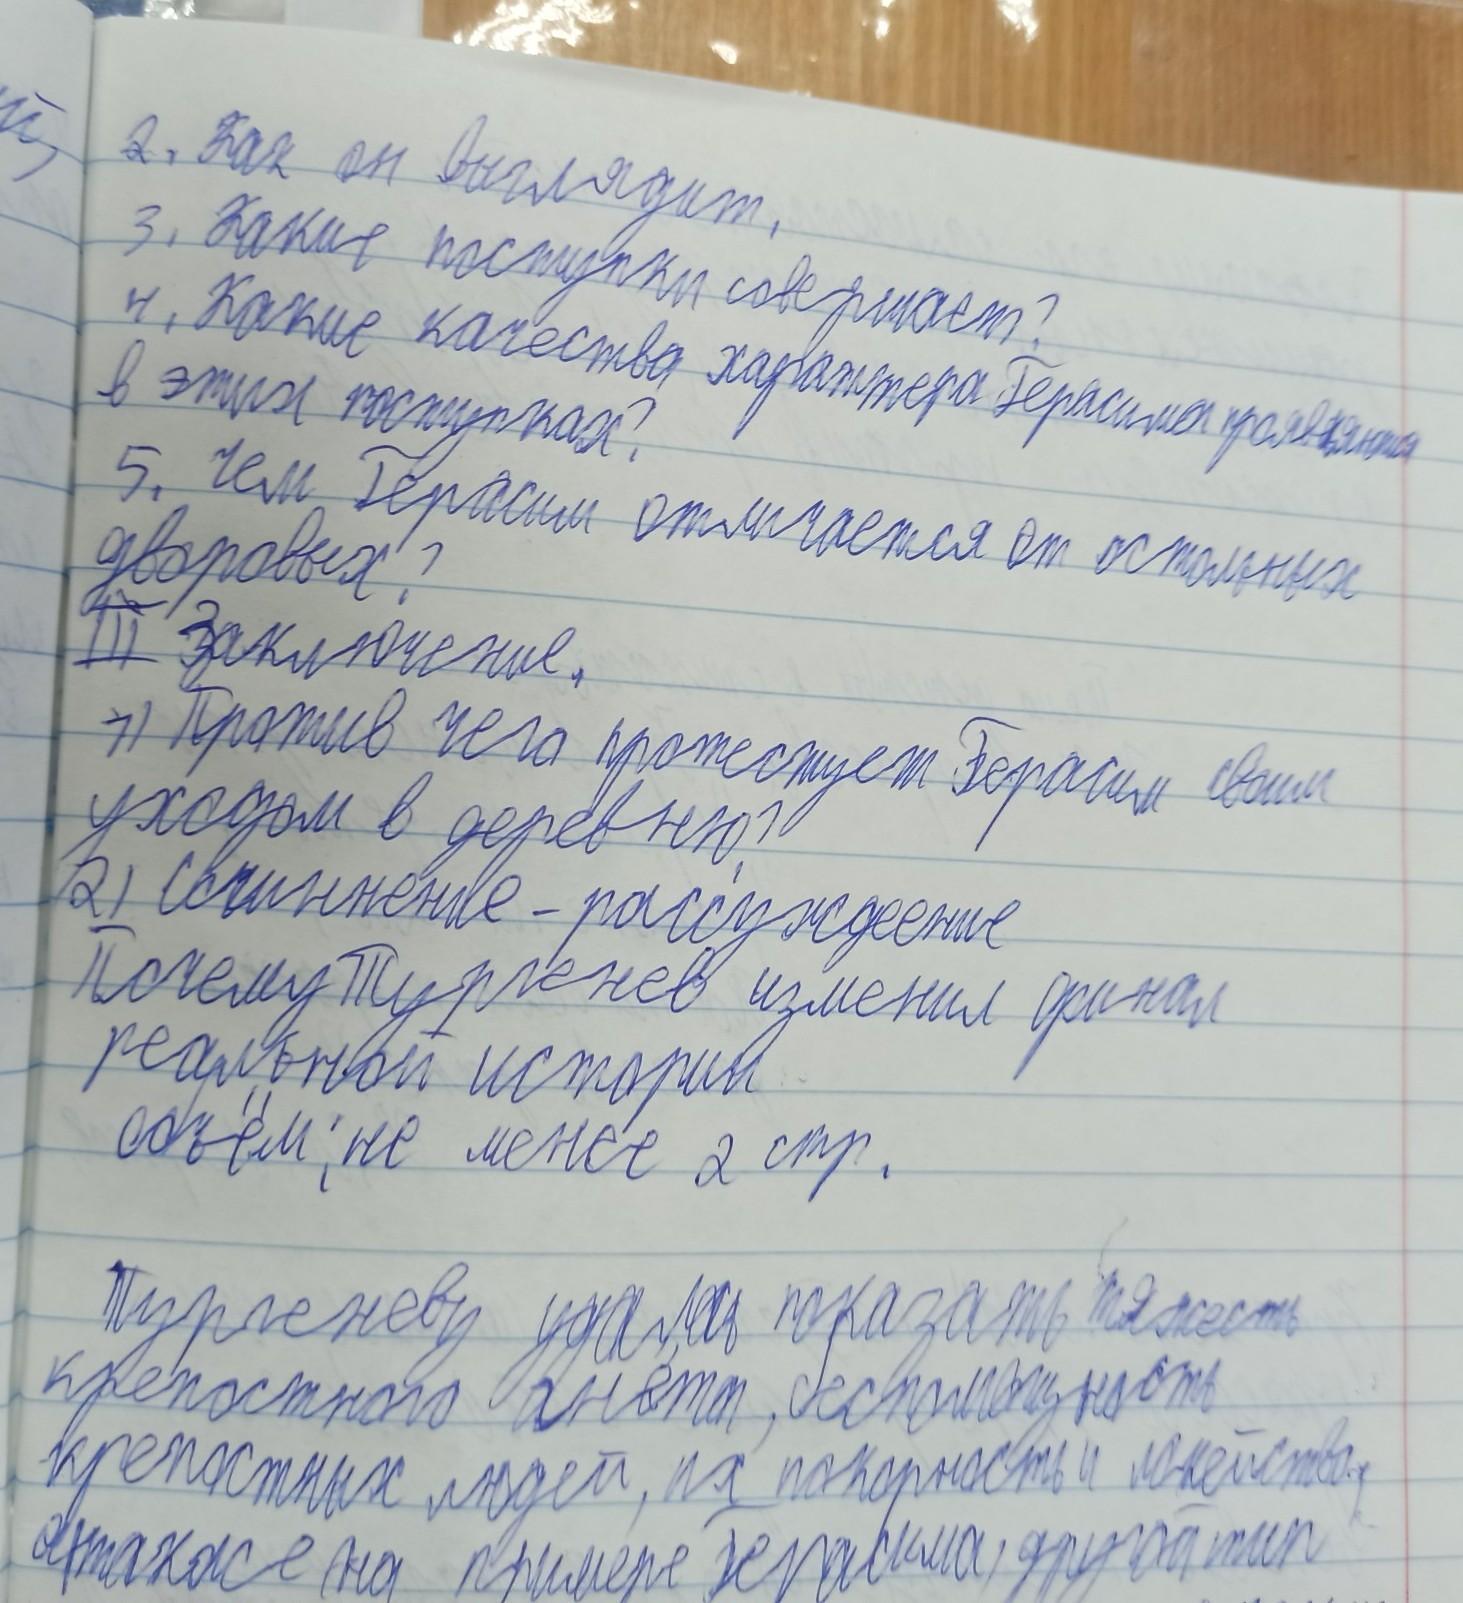 й,
2. Как он выглядит,
3. Какие поступки совершает?
4. Какие качества характера Герасима проявляются
в этих поступках?
5. Чем Герасим отличается от остольных
дворовых?
III Заключение.
1) Против чего протестует Герасим своим
уходом в деревню?
2) Сочиннение - рассуждеение
Почему Тургенев изменил финал
реальной истории
объём: не менее 2 стр.
Тургеневу удалось показать тяжесть
крепостного гнёта, беспомощность
крепостных людей, их покорность и лакейство,
а также (на примере Герасима) другой тип